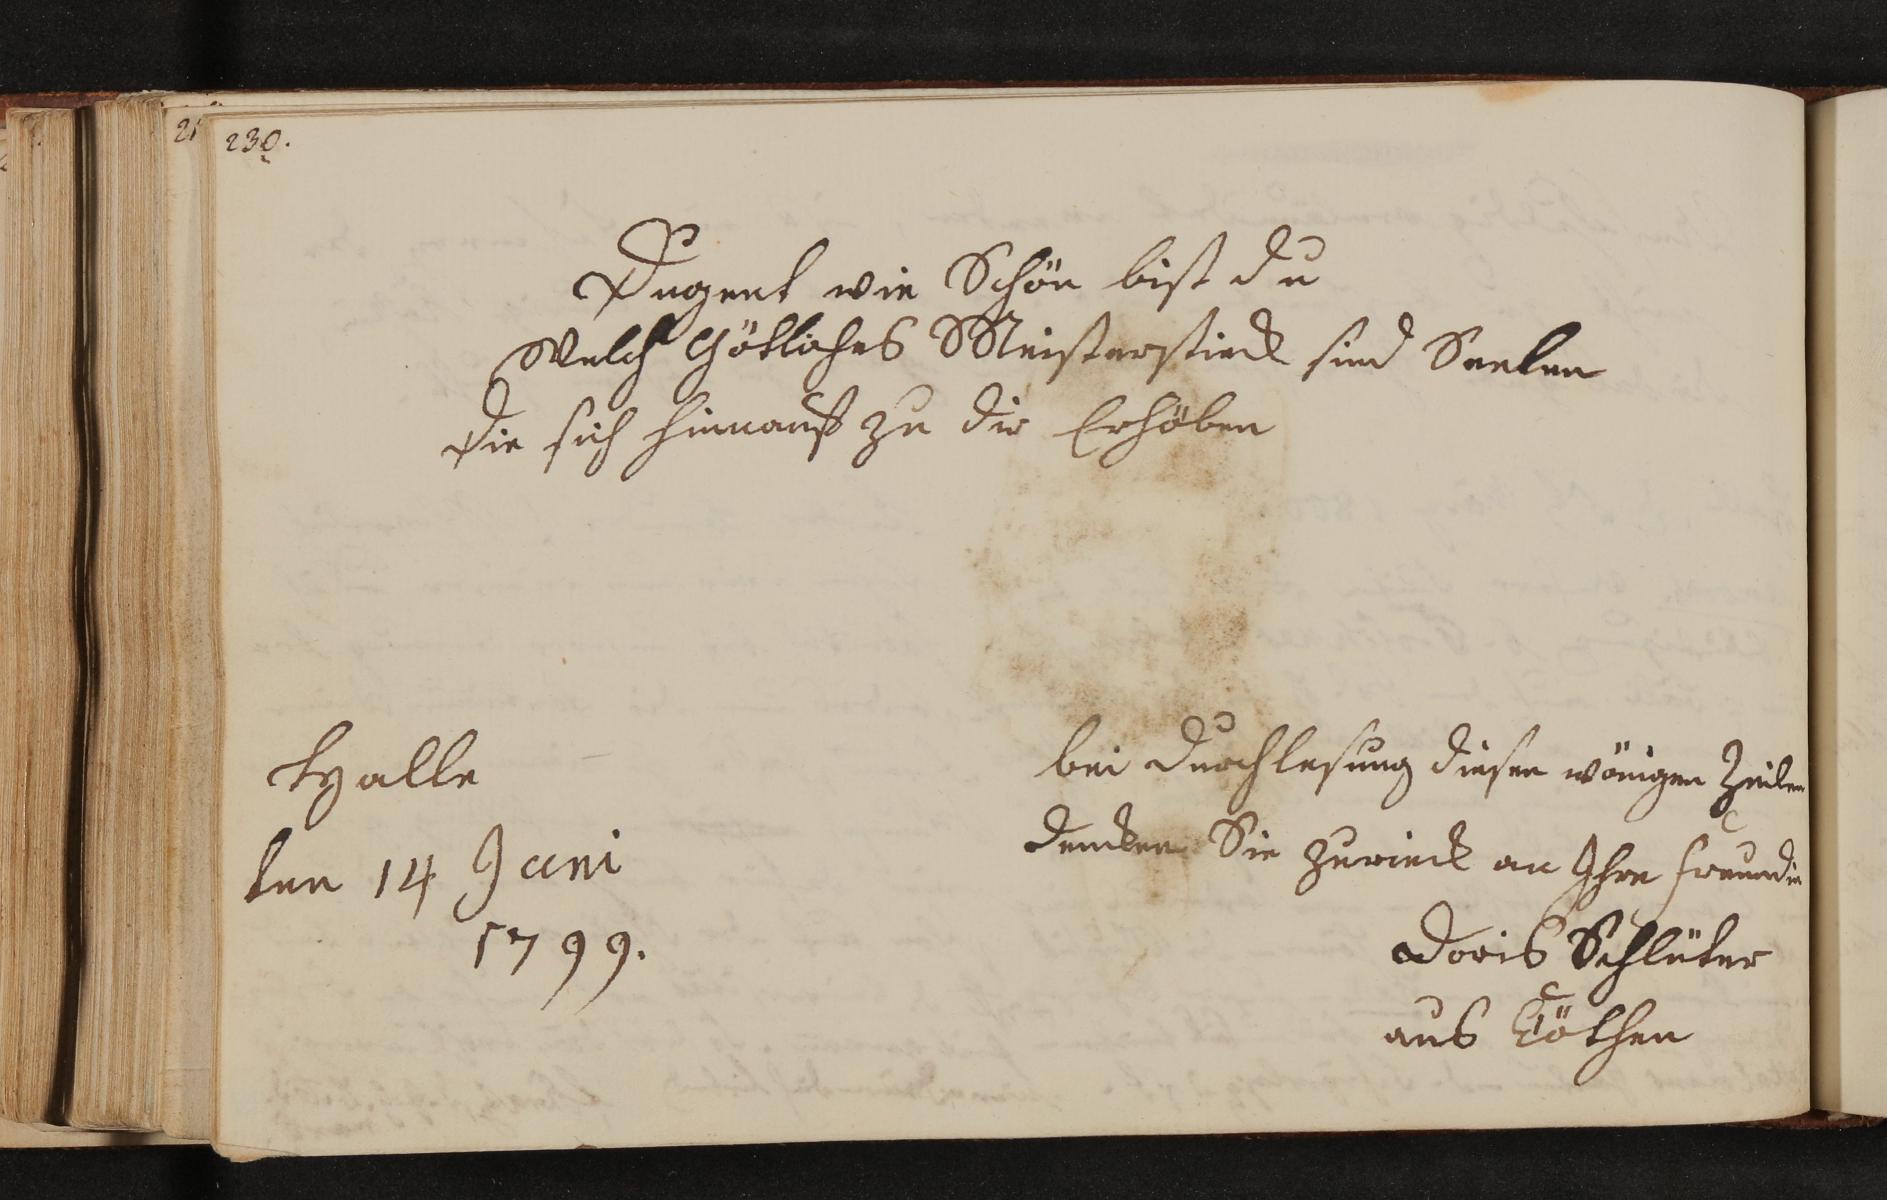 230.
Tugent wie Schön bist du
Welch Götliches Meisterstieck sind Seelen
Die sich hinnauf zu dir Erhöben
Halle
den 14 Juni
1799.
bei Durchlesung dieser wönigen Zeilen
Dencken Sie zurieck an Ihre freundin
Doris Schlüter
aus Cöthen